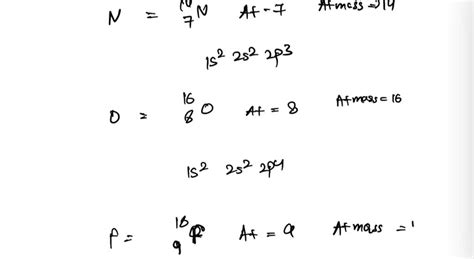 N = 7 N At - 7 At mass = 14
1s² 2s² 2p3
O = 16 8 O At = 8 At mass = 16
1s² 2s² 2p4
F = 18 9 F At = 9 At mass =